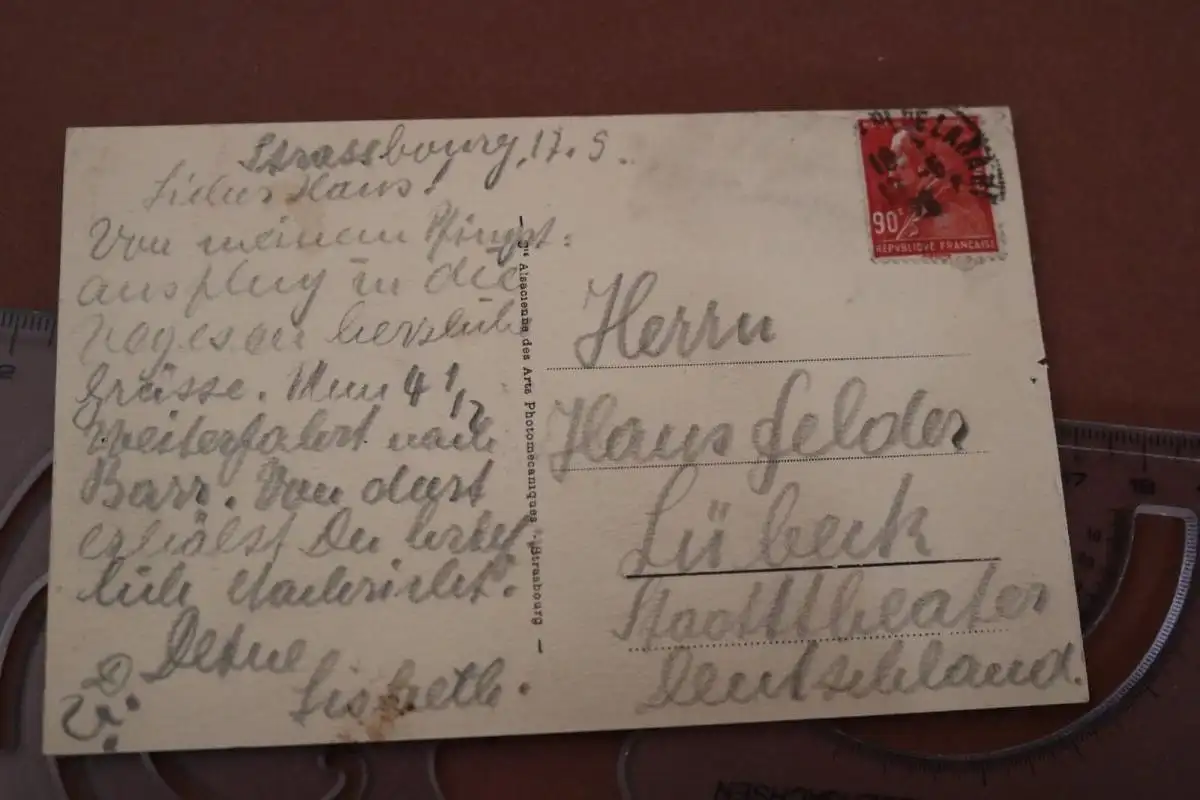 Strassbourg, 17. 5.
Lieber Hans!
Von meinem Pfingst=
ausflug in die
Vogesen herzlich
Grüsse. Um 4 1/2
Weiterfahrt nach
Barr. Von dort
erhälst Du brief
lich Nachricht.
Deine
Lisbeth
Cie Alsacienne des Arts Photomécaniques - Strasbourg
90c
REPUBLIQUE FRANCAISE
Herrn
Hans felder
Lübeck
Stadttheater
Deutschland.